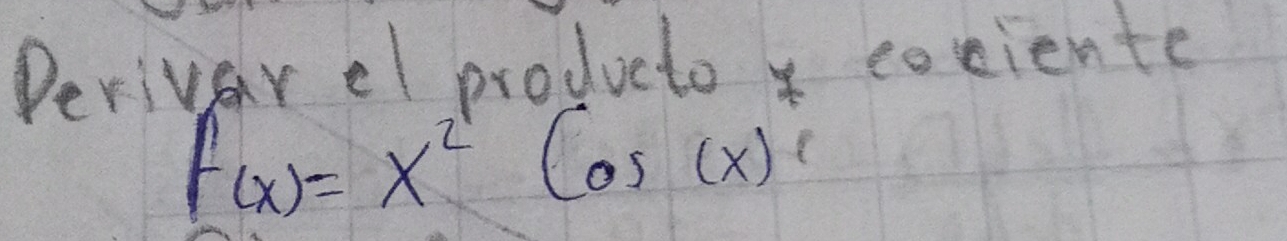 Derivar el producto y cociente
f(x) = x² Cos (x)